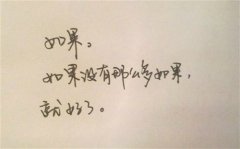 如果。
如果没有那么多如果,
就好了。